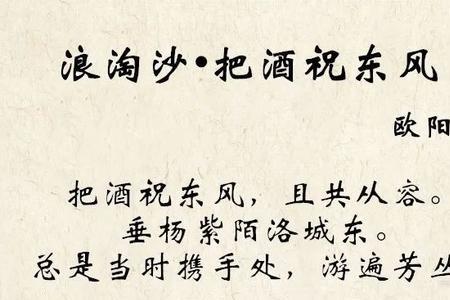 浪淘沙•把酒祝东风
欧阳
把酒祝东风，且共从容。
垂杨紫陌洛城东。
总是当时携手处，游遍芳丛